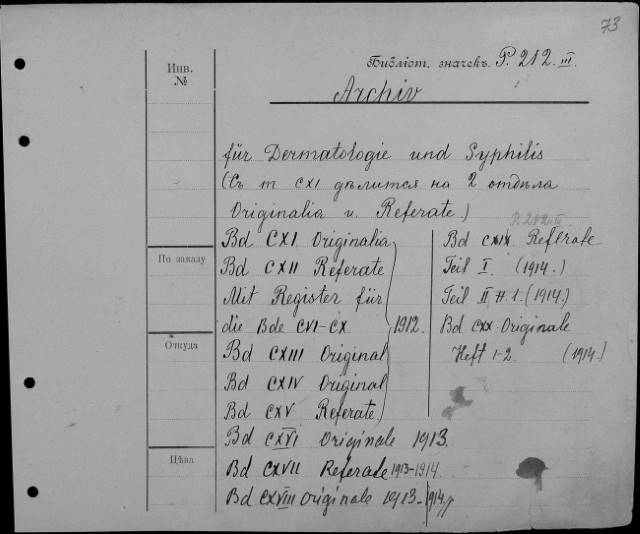 73
Инв.
№
Библіот. значекъ. P. 212. III.
Archiv
für Dermatologie und Syphilis
(Съ т CXI дѣлится на 2 отдѣла
Originalia u. Referate.)
Bd CXI. Originalia
Bd CXII Referate
Mit Register für
die Bde CVI-CX.
1912.
Bd CXIII Original
Bd CXIV Original
Bd CXV Referate
Bd CXVI Originale 1913.
Bd CXVII Referate 1913-1914.
Bd CXVIII Originale 1913-1914
P. 212. III
Bd CXIX Referate
Teil I. (1914.)
Teil II H. 1. (1914.)
Bd CXX Originale
Heft 1-2. (1914.)
По заказу
Откуда
Цѣна